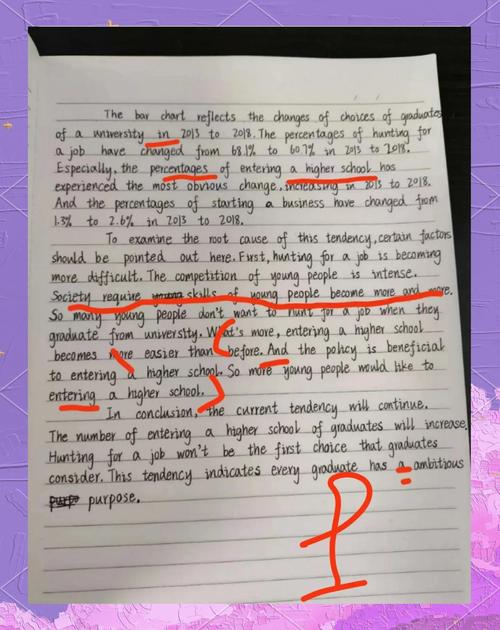 The bar chart reflects the changes of choices of graduates
of a university in 2013 to 2018. The percentages of hunting for
a job have changed from 68.1% to 60.7% in 2013 to 2018.
Especially, the percentages of entering a higher school has
experienced the most obvious change, increasing in 2013 to 2018.
And the percentages of starting a business have changed from
1.3% to 2.6% in 2013 to 2018.
To examine the root cause of this tendency, certain factors
should be pointed out here. First, hunting for a job is becoming
more difficult. The competition of young people is intense.
Society require skills of young people become more and more.
So many young people don't want to hunt for a job when they
graduate from university. What's more, entering a higher school
becomes more easier than before. And the policy is beneficial
to entering a higher school. So more young people would like to
entering a higher school.
In conclusion, the current tendency will continue.
The number of entering a higher school of graduates will increase.
Hunting for a job won't be the first choice that graduates
consider. This tendency indicates every graduate has a ambitious
purpose.